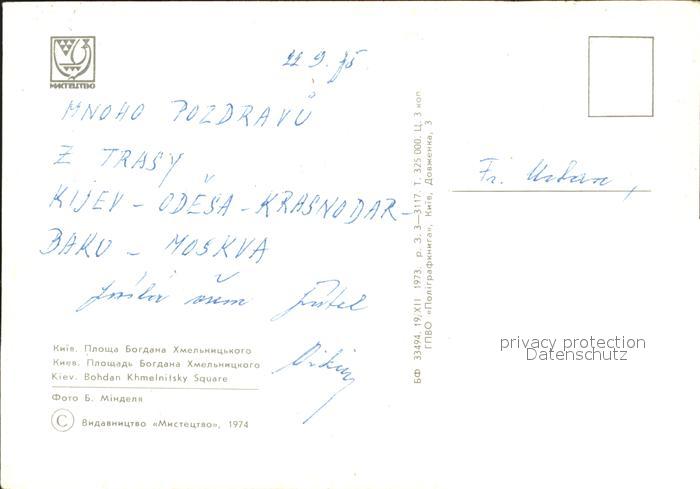 МИСТЕЦТВО
22.9.75
MNOHO POZDRAVŮ
Z TRASY
KIJEV – ODĚSA – KRASNODAR –
BAKU – MOSKVA
všem
Київ. Площа Богдана Хмельницького
Киев. Площадь Богдана Хмельницкого
Kiev. Bohdan Khmelnitsky Square
Фото Б. Мінделя
© Видавництво «Мистецтво», 1974
БФ 33494. 19/XII 1973. р. З. 3—3117. Т. 325 000. Ц. 3 коп.
ГПВО «Поліграфкнига», Київ, Довженка, 3
Fr.
privacy protection
Datenschutz